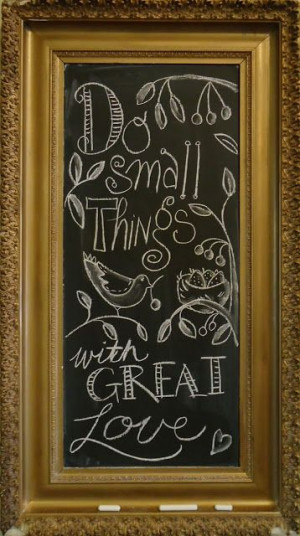 Do
small
Things
with
GREAT
Love